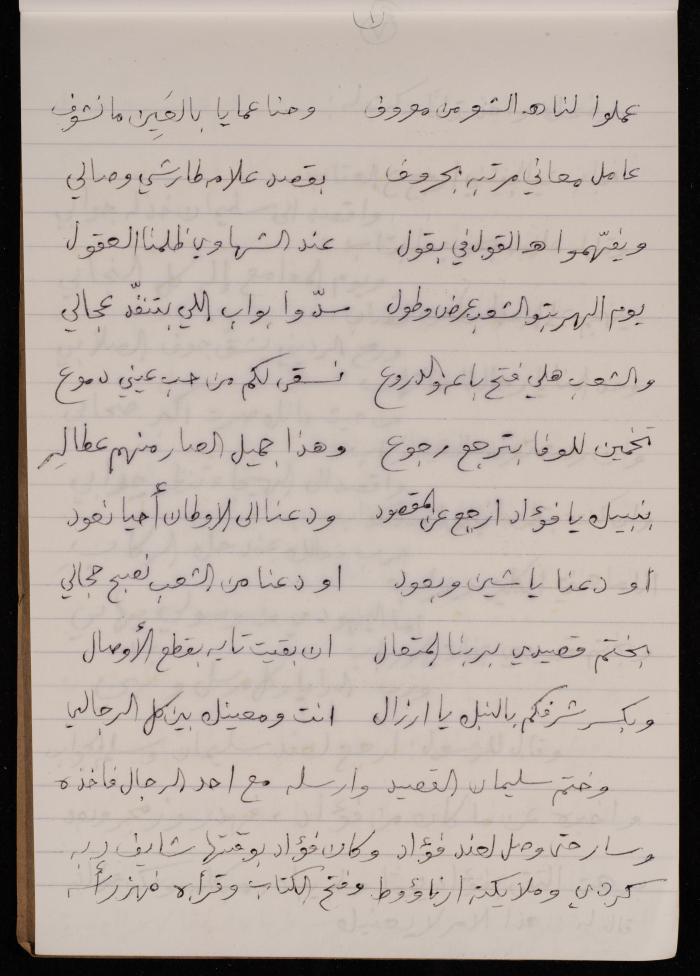 ١
عملوا لنا هالشو من معروف وحنا عمايا بالعَين ما نشوف
عامل معاني مرتبه بحروف بقصد علامه طارشي وصالي
ويفهّموا هالقول في بقول عند الشهاوي ظلمنا العقول
يوم الهريتو الشعب عرض وطول سدّوا بواب اللي بتنفّد عجالي
والشعب هلي فتح باعه والدروع لكم من حب عيني دموع
تخمين للوفا بترجع رجوع وهذا جميل الصار منهم عطالي
بنبيك يا فؤاد ارجع عن المقصود ودعنا الى الاوطان أحيا نعود
او دعنا يا شين وبعود او دعنا من الشعب نصبح حجالي
بختم قصيدي بربنا المتعال ان بقيت تايه بقطع الأوصال
وبكسر شرفكم بالنبل يا ارزال انت ومعينك بين كل الرجالي
وختم سليمان القصيد وارسله مع احد الرجال فاخذه
وسار حتى وصل لعند فؤاد وكان فؤاد بوقتها شايف ربه
كردي وملايكته ارناؤوط وفتح الكتاب وقرأه فهز رأسه